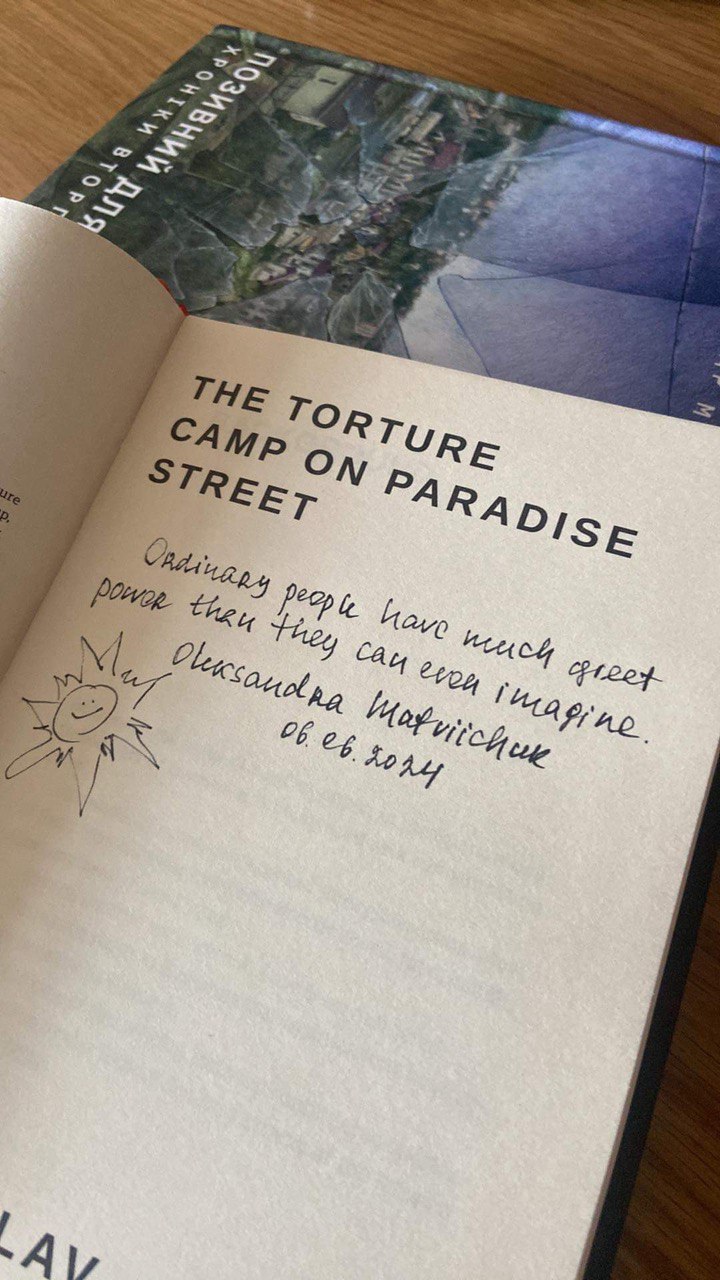 ПОЗИВНИЙ ДЛЯ
ХРОНІКИ ВТОРГ
ure
p.
THE TORTURE
CAMP ON PARADISE
STREET
Ordinary people have much greet
power than they can even imagine.
Oleksandra Matviichuk
06.06.2024
LAV